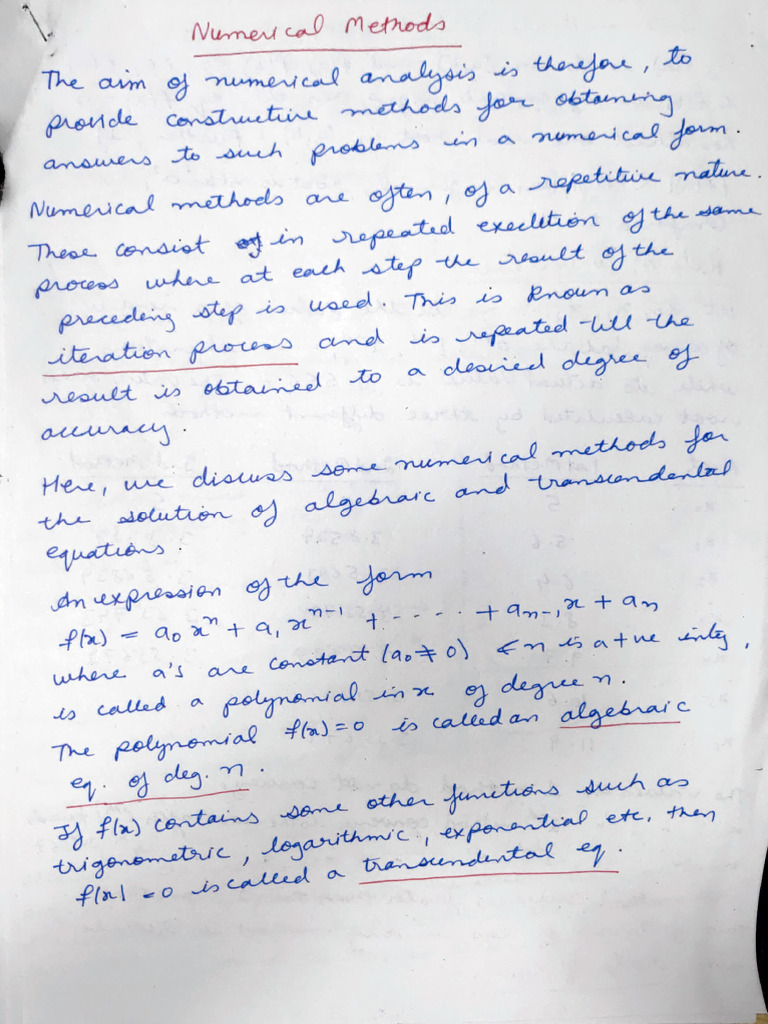 Numerical Methods
The aim of numerical analysis is therefore, to
provide constructive methods for obtaining
answers to such problems in a numerical form.
Numerical methods are often, of a repetitive nature.
These consist of in repeated execution of the same
process where at each step the result of the
preceding step is used. This is known as
iteration process and is repeated till the
result is obtained to a desired degree of
accuracy.
Here, we discuss some numerical methods for
the solution of algebraic and transcendental
equations.
An expression of the form
f(x) = a₀xⁿ + a₁xⁿ⁻¹ + - - - - - + aₙ₋₁x + aₙ
where a's are constant (a₀ ≠ 0) & n is a +ve integ,
is called a polynomial in x of degree n.
The polynomial f(x)=0 is called an algebraic
eq. of deg. n.
If f(x) contains some other functions such as
trigonometric, logarithmic, exponential etc, then
f(x) = 0 is called a transcendental eq.